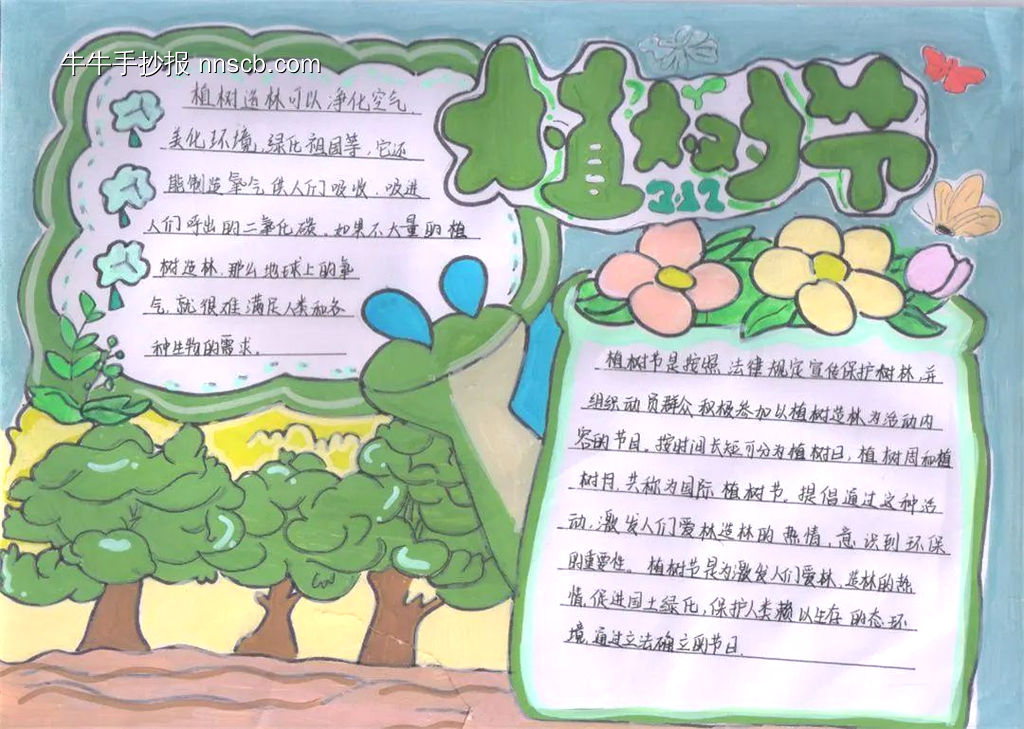 牛牛手抄报 nnscb.com
植树节
3.12
植树造林可以净化空气
美化环境,绿化祖国等,它还
能制造氧气供人们吸收,吸进
人们呼出的二氧化碳。如果不大量的植
树造林,那么地球上的氧
气,就很难满足人类和各
种生物的需求。
植树节是按照法律规定宣传保护树林,并
组织动员群众积极参加以植树造林为活动内
容的节日。按时间长短可分为植树日,植树周和植
树月,共称为国际植树节。提倡通过这种活
动,激发人们爱林造林的热情,意识到环保
的重要性。植树节是为激发人们爱林,造林的热
情,促进国土绿化,保护人类赖以生存的态环
境,通过立法确立的节日.